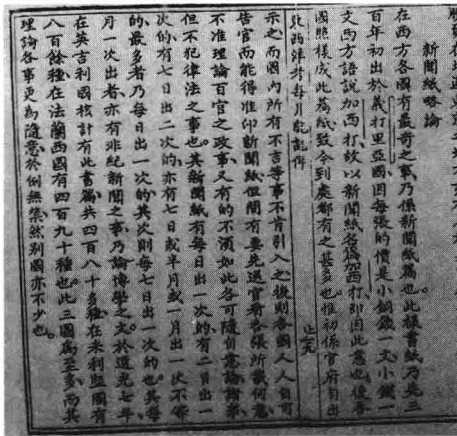 新聞紙略論
在西方各國有最奇之事乃係新聞紙篇也。此樣書紙乃先三
百年初出於義打里亞國因每張的價是小銅錢一文小錢一
文西方語說加西打故以新聞紙名篇加西打即因此意也後各
國照樣成此篇紙致今到處都有之甚多也。惟初係官府自出
東西洋考每月統記傳
示之而國內所有不吉等事不肯引入之後則各國人人自可
告官而能得准印新聞紙但間有要先送官看各張所載何意
不准理論百官之政事又有的不須如此各可隨自意論諸事
但不犯律法之事也。其新聞紙有每日出一次的有二日出一
次的有七日出二次的亦有七日或半月或一月出一次不等
的最多者乃每日出一次的其次則每七日出一次的也。其每
月一次出者亦有非紀新聞之事乃論博學之文於道光七年
在英吉利國核計有此書篇共四百八十多種在米利堅國有
八百餘種在法蘭西國有四百九十種也。此三國爲至多而其
理論各事更爲隨意於例無禁然別國亦不少也。